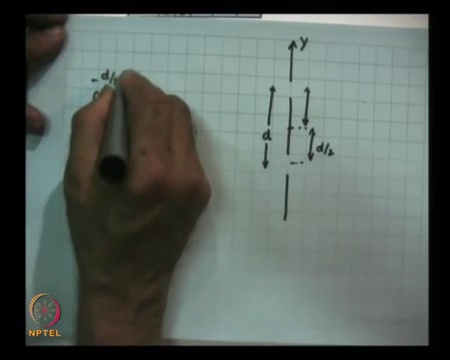 Y
- d/
d
d/2
NPTEL